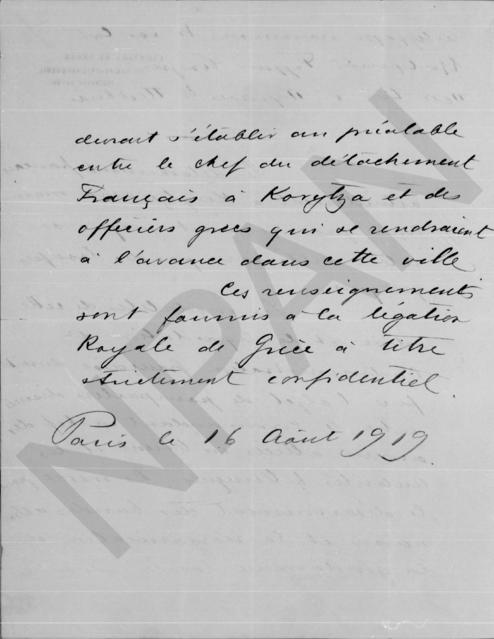 devrait s'établir au préalable
entre le chef du détachement
Français à Korytza et des
officiers grecs qui se rendraient
à l'avance dans cette ville
Ces renseignements
sont fournis à la légation
Royale de Grèce à titre
strictement confidentiel.
Paris le 16 Août 1919.
NPAN